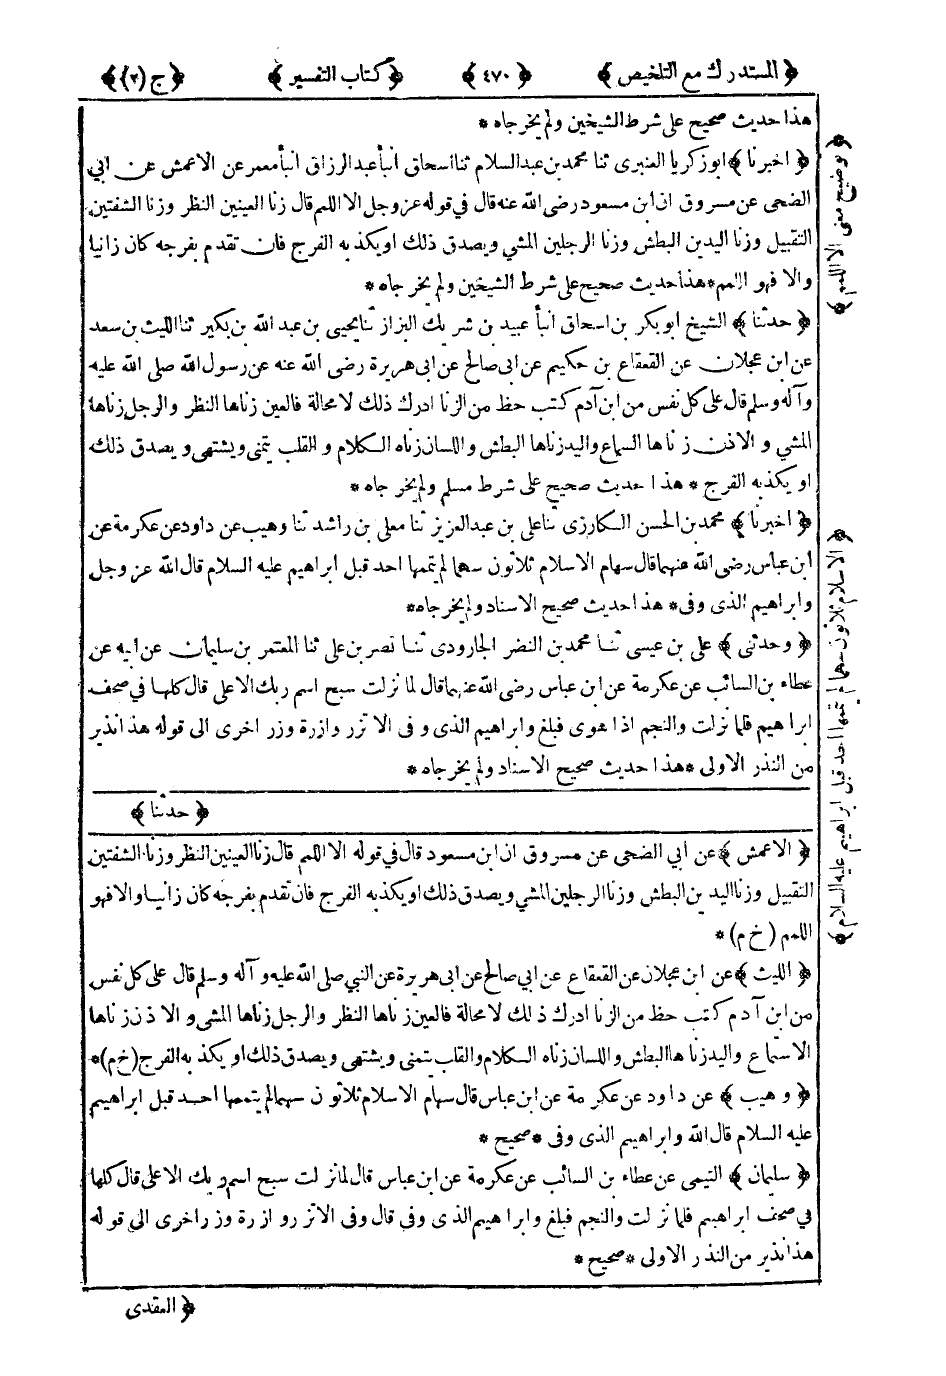 ﴿ المستدرك مع التلخيص ﴾ ﴿ ٤٧٠ ﴾ ﴿ كتاب التفسير ﴾ ﴿ ج (٢) ﴾
هذا حديث صحيح على شرط الشيخين ولم يخرجاه *
﴿ اخبرنا ﴾ ابو زكريا العنبرى ثنا محمد بن عبد السلام ثنا اسحاق انبأ عبد الرزاق انبأ معمر عن الاعمش عن ابي
الضحى عن مسروق ان ابن مسعود رضى الله عنه قال في قوله عز وجل الا اللمم قال زنا العينين النظر وزنا الشفتين
التقبيل وزنا اليدين البطش وزنا الرجلين المشي ويصدق ذلك او يكذبه الفرج فان تقدم بفرجه كان زانيا
والا فهو اللمم * هذا حديث صحيح على شرط الشيخين ولم يخرجاه *
﴿ حدثنا ﴾ الشيخ ابو بكر بن اسحاق انبأ عبيد بن شريك البزاز ثنا يحيى بن عبد الله بن بكير ثنا الليث بن سعد
عن ابن عجلان عن القعقاع بن حكيم عن ابى صالح عن ابى هريرة رضى الله عنه عن رسول الله صلى الله عليه
وآله وسلم قال على كل نفس من ابن آدم كتب حظ من الزنا ادرك ذلك لا محالة فالعين زناها النظر والرجل زناها
المشي و الاذن زناها السماع واليد زناها البطش واللسان زناه الكلام و القلب يتمنى ويشتهى ويصدق ذلك
او يكذبه الفرج * هذا حديث صحيح على شرط مسلم ولم يخرجاه *
﴿ اخبرنا ﴾ محمد بن الحسن الكارزى ثنا على بن عبد العزيز ثنا معلى بن راشد ثنا وهيب عن داود عن عكرمة عن
ابن عباس رضى الله عنهما قال سهام الاسلام ثلاثون سهما لم يتمها احد قبل ابراهيم عليه السلام قال الله عز وجل
وابراهيم الذى وفى * هذا حديث صحيح الاسناد ولم يخرجاه *
﴿ وحدثنى ﴾ على بن عيسى ثنا محمد بن النضر الجارودى ثنا نصر بن على ثنا المعتمر بن سليمان عن ابيه عن
عطاء بن السائب عن عكرمة عن ابن عباس رضى الله عنهما قال لما نزلت سبح اسم ربك الاعلى قال كلها في صحف
ابراهيم فلما نزلت والنجم اذا هوى فبلغ وابراهيم الذى وفى الا تزر وازرة وزر اخرى الى قوله هذا نذير
من النذر الاولى * هذا حديث صحيح الاسناد ولم يخرجاه *
﴿ حدثنا ﴾
﴿ الاعمش ﴾ عن أبي الضحى عن مسروق ان ابن مسعود قال في قوله الا اللمم قال زنا العينين النظر وزنا الشفتين
التقبيل وزنا اليدين البطش وزنا الرجلين المشي ويصدق ذلك او يكذبه الفرج فان تقدم بفرجه كان زانيا والا فهو
اللمم (خ م) *
﴿ الليث ﴾ عن ابن عجلان عن القعقاع عن ابي صالح عن ابى هريرة عن النبي صلى الله عليه وآله وسلم قال على كل نفس
من ابن آدم كتب حظ من الزنا ادرك ذلك لا محالة فالعين زناها النظر والرجل زناها المشى و الاذن زناها
الاستماع واليد زناها البطش واللسان زناه الكلام والقلب يتمنى ويشتهى ويصدق ذلك او يكذبه الفرج (خ م) *
﴿ وهيب ﴾ عن داود عن عكرمة عن ابن عباس قال سهام الاسلام ثلاثون سهما لم يتممها احد قبل ابراهيم
عليه السلام قال الله وابراهيم الذى وفى * صحيح *
﴿ سليمان ﴾ التيمى عن عطاء بن السائب عن عكرمة عن ابن عباس قال لما نزلت سبح اسم ربك الاعلى قال كلها
في صحف ابراهيم فلما نزلت والنجم فبلغ وابراهيم الذى وفى قال وفى الا تزر وازرة وزر اخرى الى قوله
هذا نذير من النذر الاولى * صحيح *
﴿ العقدى
﴿ توضيح معنى الا اللمم ﴾
﴿ الاسلام ثلاثون سهما لم يتمها احد قبل ابراهيم عليه السلام ﴾